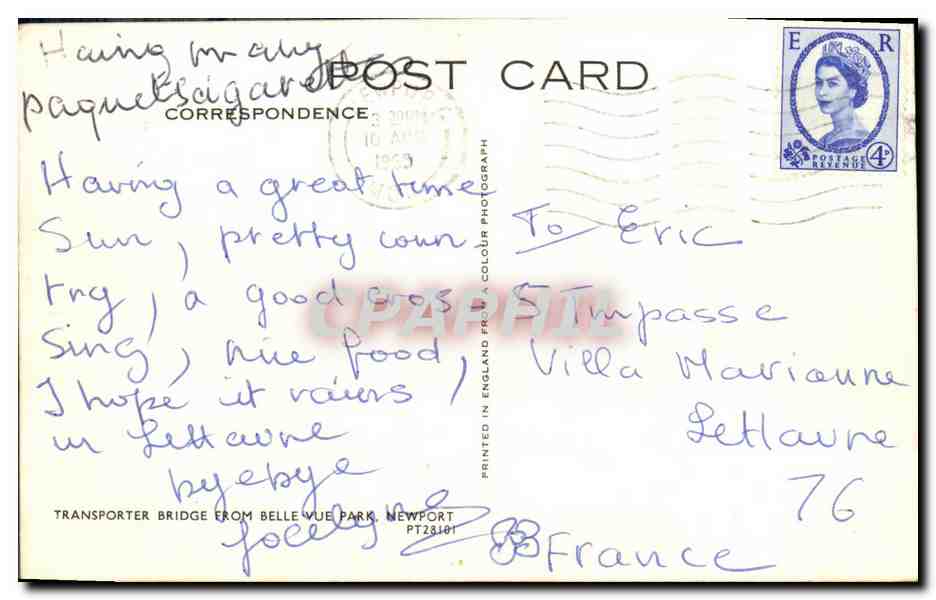 Having many
paquets cigarettes
POST CARD
CORRESPONDENCE
Having a great time
Sun, pretty coun-
try, a good cros-
sing, nice food,
I hope it rains
in Le Havre
byebye
Jocelyne
TRANSPORTER BRIDGE FROM BELLE VUE PARK, NEWPORT
PT28101
PRINTED IN ENGLAND FROM A COLOUR PHOTOGRAPH
E R
POSTAGE
REVENUE
4D
10 AUG
1965
To Eric
5 Impasse
Villa Marianne
Le Havre
76
France
CPAPHIL